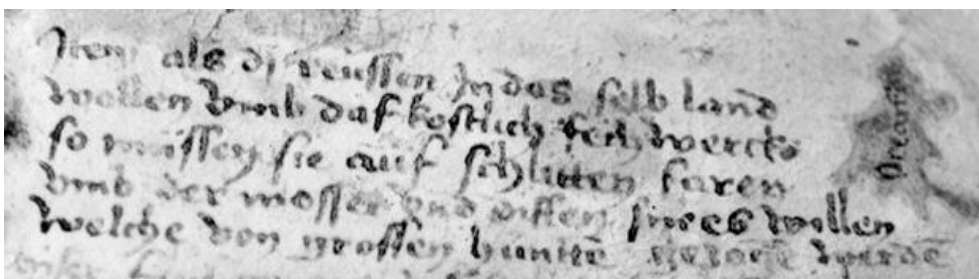 Item als dj reussen Jn das selb land
wollen vmb daß kostlich feih wercks
so müssen sie auf schlitten faren
vmb der mosser vnd diffen snees willen
welche von grossen huntē gezogē werdē